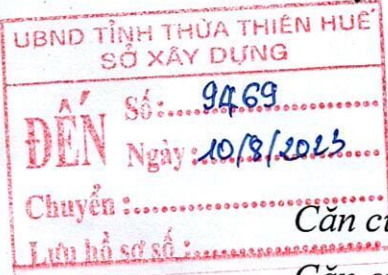 UBND TỈNH THỪA THIÊN HUẾ
SỞ XÂY DỰNG
ĐẾN
Số:.....9469
Ngày:10/8/2023
Chuyển:
Lưu hồ sơ số:
Căn cứ
Căn